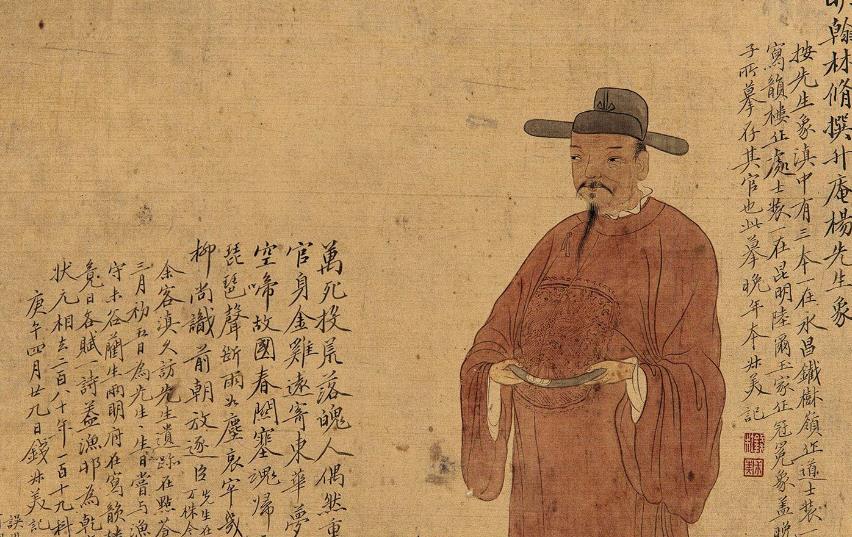 翰林脩撰升庵楊先生象
按先生象滇中有三本一在永昌鐵樹嶺止道士裝一
寫韻樓止處士裝一在昆明陸爾玉家止冠冕象蓋晚
子所摹存其官也此摹晚年本尗美記
萬死投荒落魄人偶然重
官身金雞遠寄東華夢
空啼故國春關塞魂歸
琵琶聲斷雨如塵哀牢幾
柳尚識前朝放逐臣
余客滇久訪先生遺跡在點蒼
三月初五日為先生生日嘗與漁
竟日各賦一詩蓋漁邨為乾
狀元相去二百八十年一百十九科
庚午四月廿九日錢尗美記